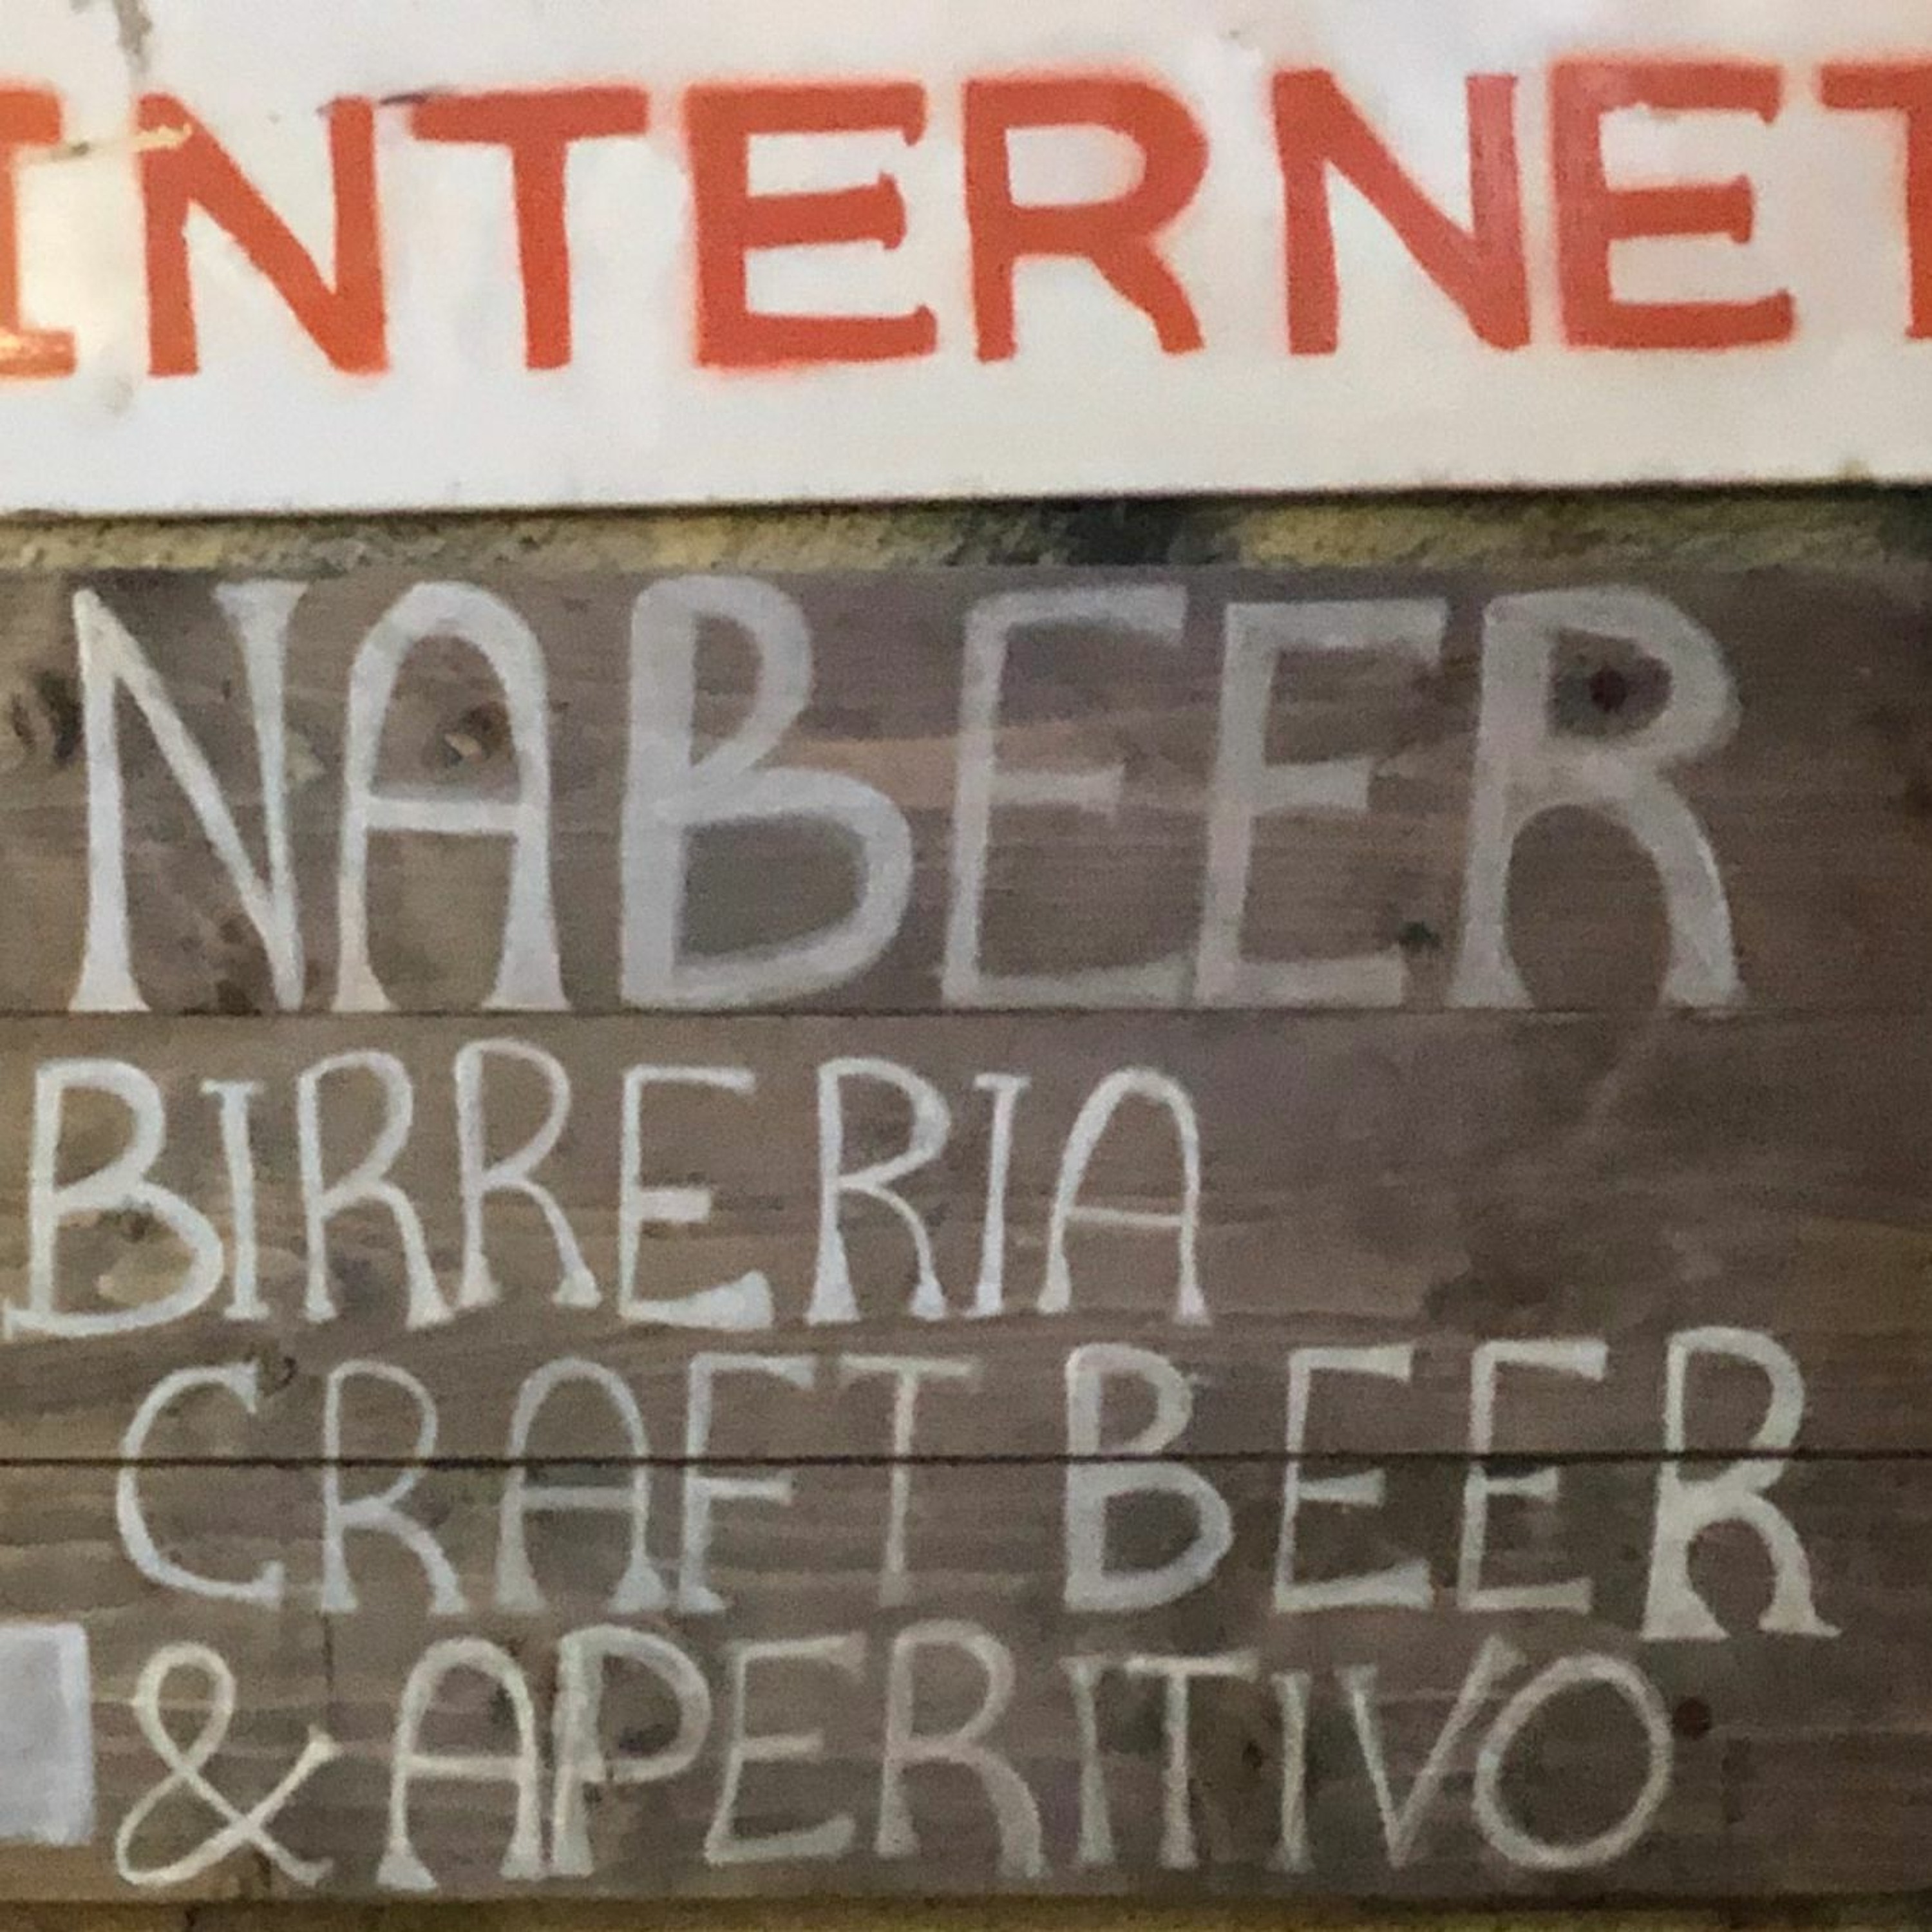 INTERNET
NABEER
BIRRERIA
CRAFT BEER
& APERITIVO